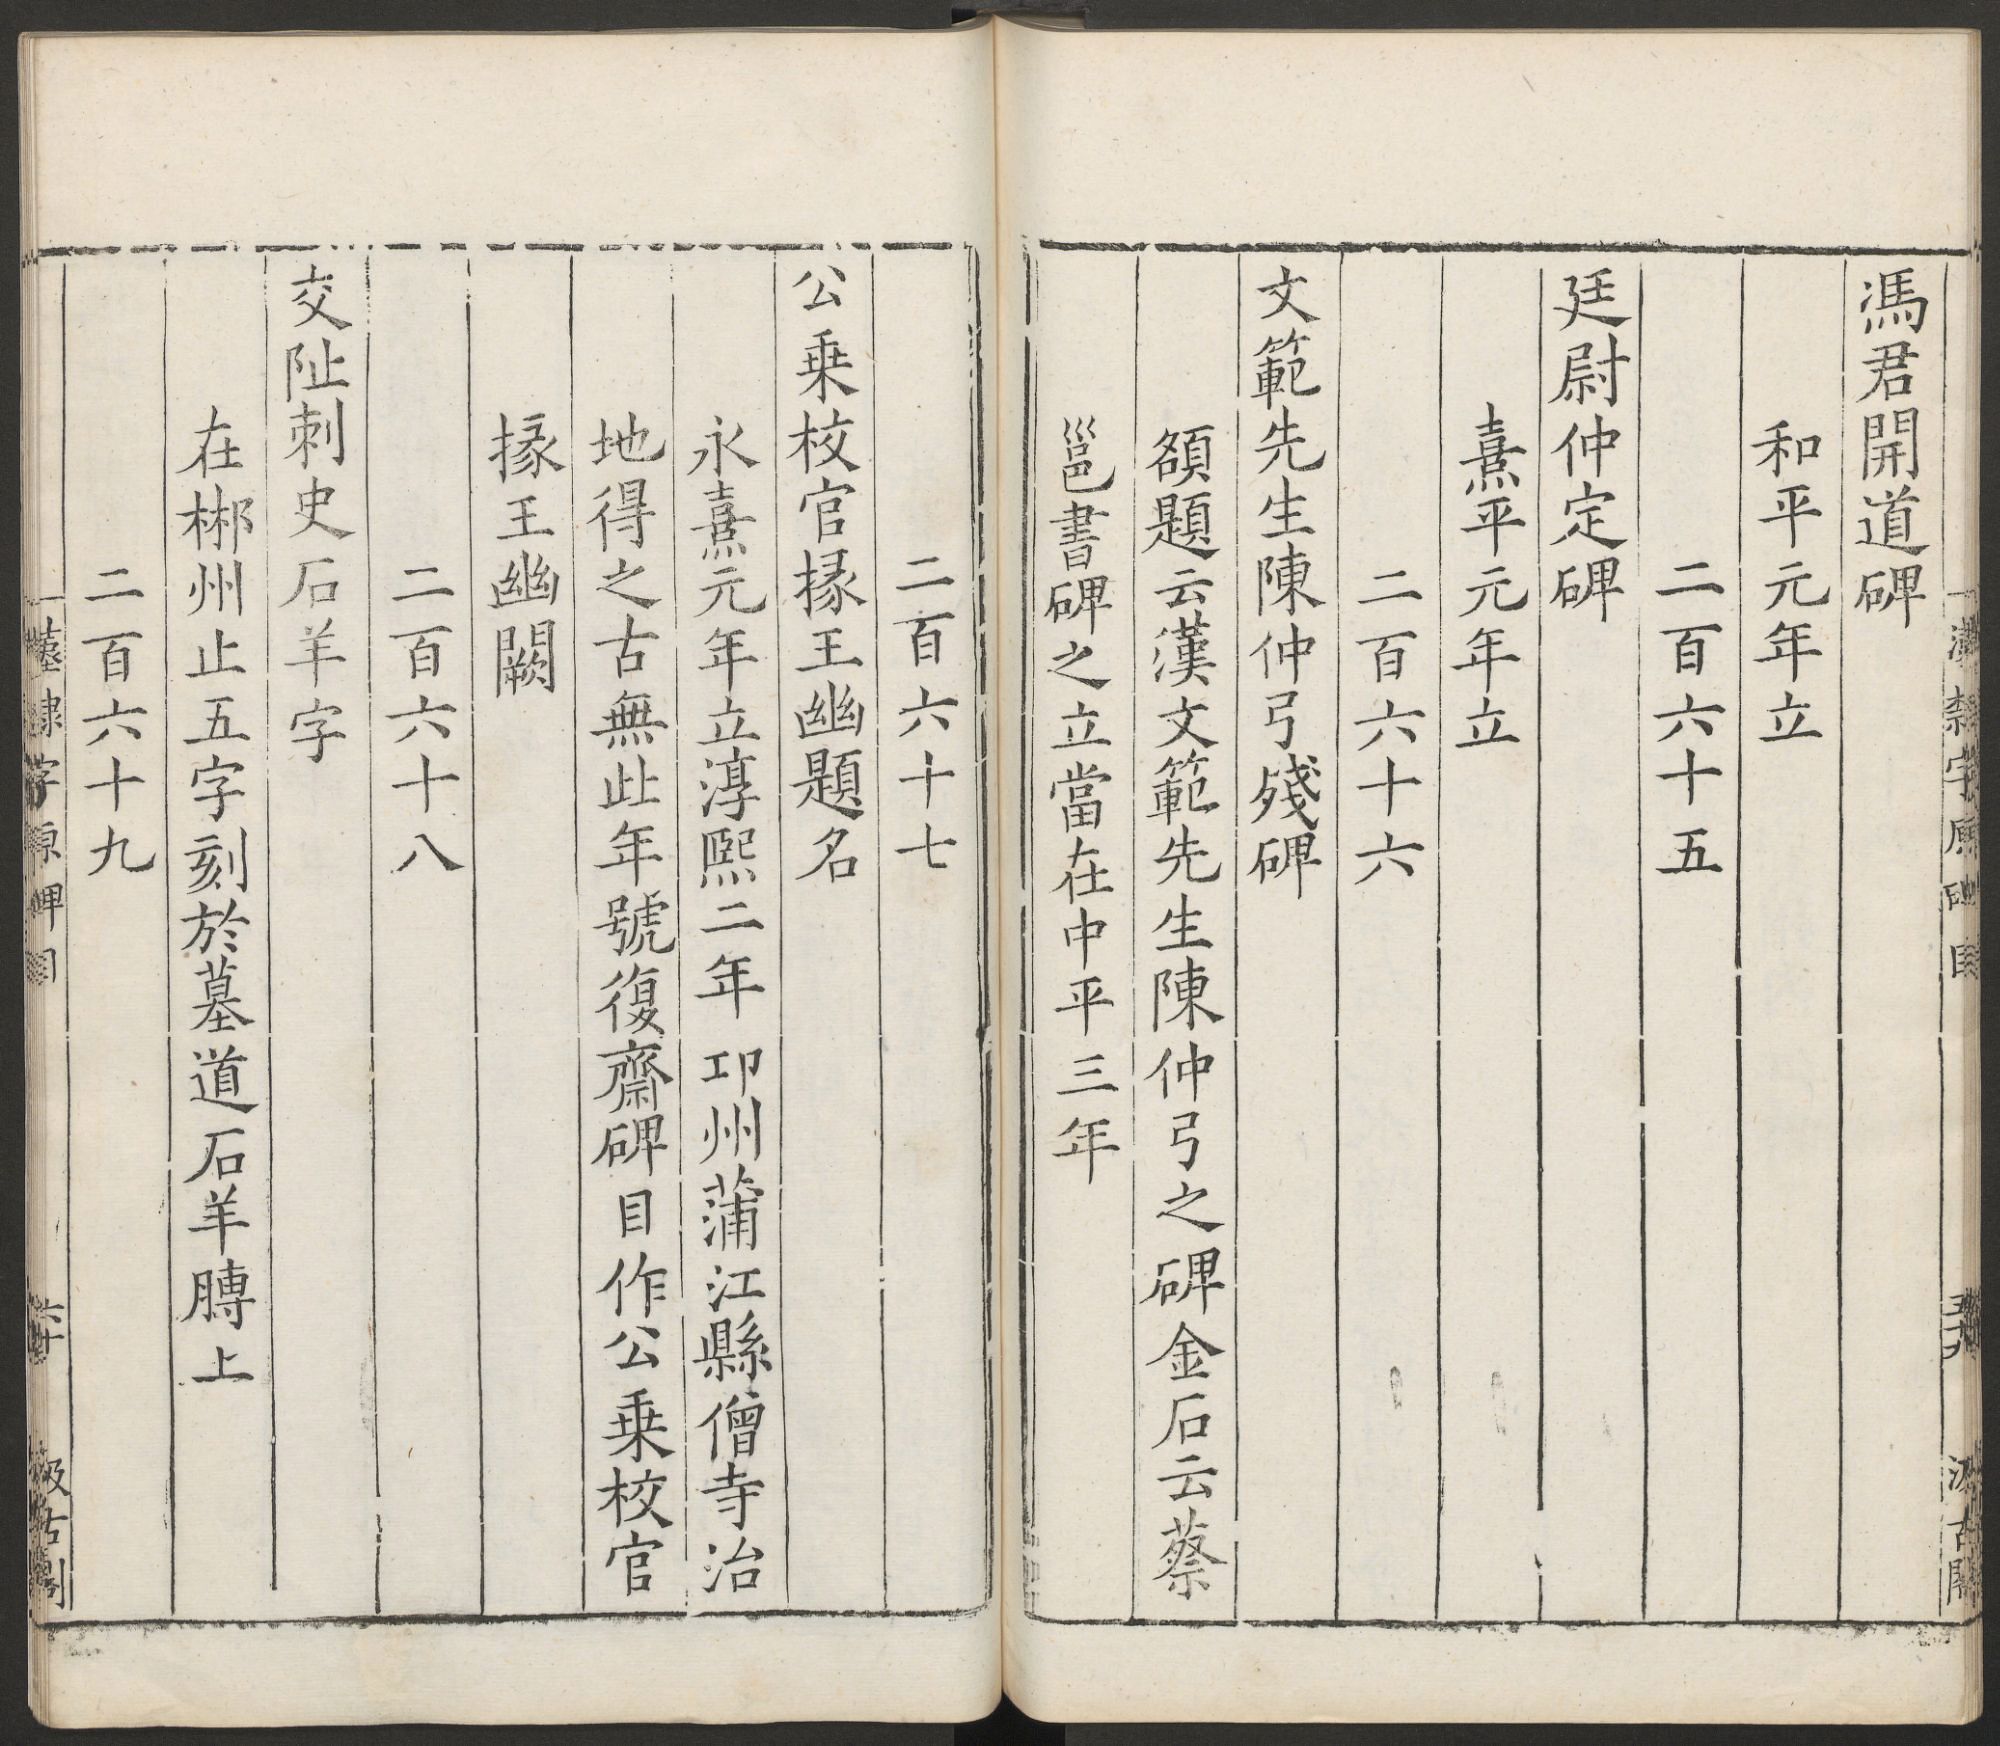 馮君開道碑
和平元年立
二百六十五
廷尉仲定碑
熹平元年立
二百六十六
文範先生陳仲弓殘碑
額題云漢文範先生陳仲弓之碑金石云蔡
邕書碑之立當在中平三年
二百六十七
公乗校官掾王幽題名
永熹元年立淳熙二年邛州蒲江縣僧寺治
地得之古無此年號復齋碑目作公乗校官
掾王幽闕
二百六十八
交阯刺史石羊字
在郴州止五字刻於墓道石羊膊上
二百六十九